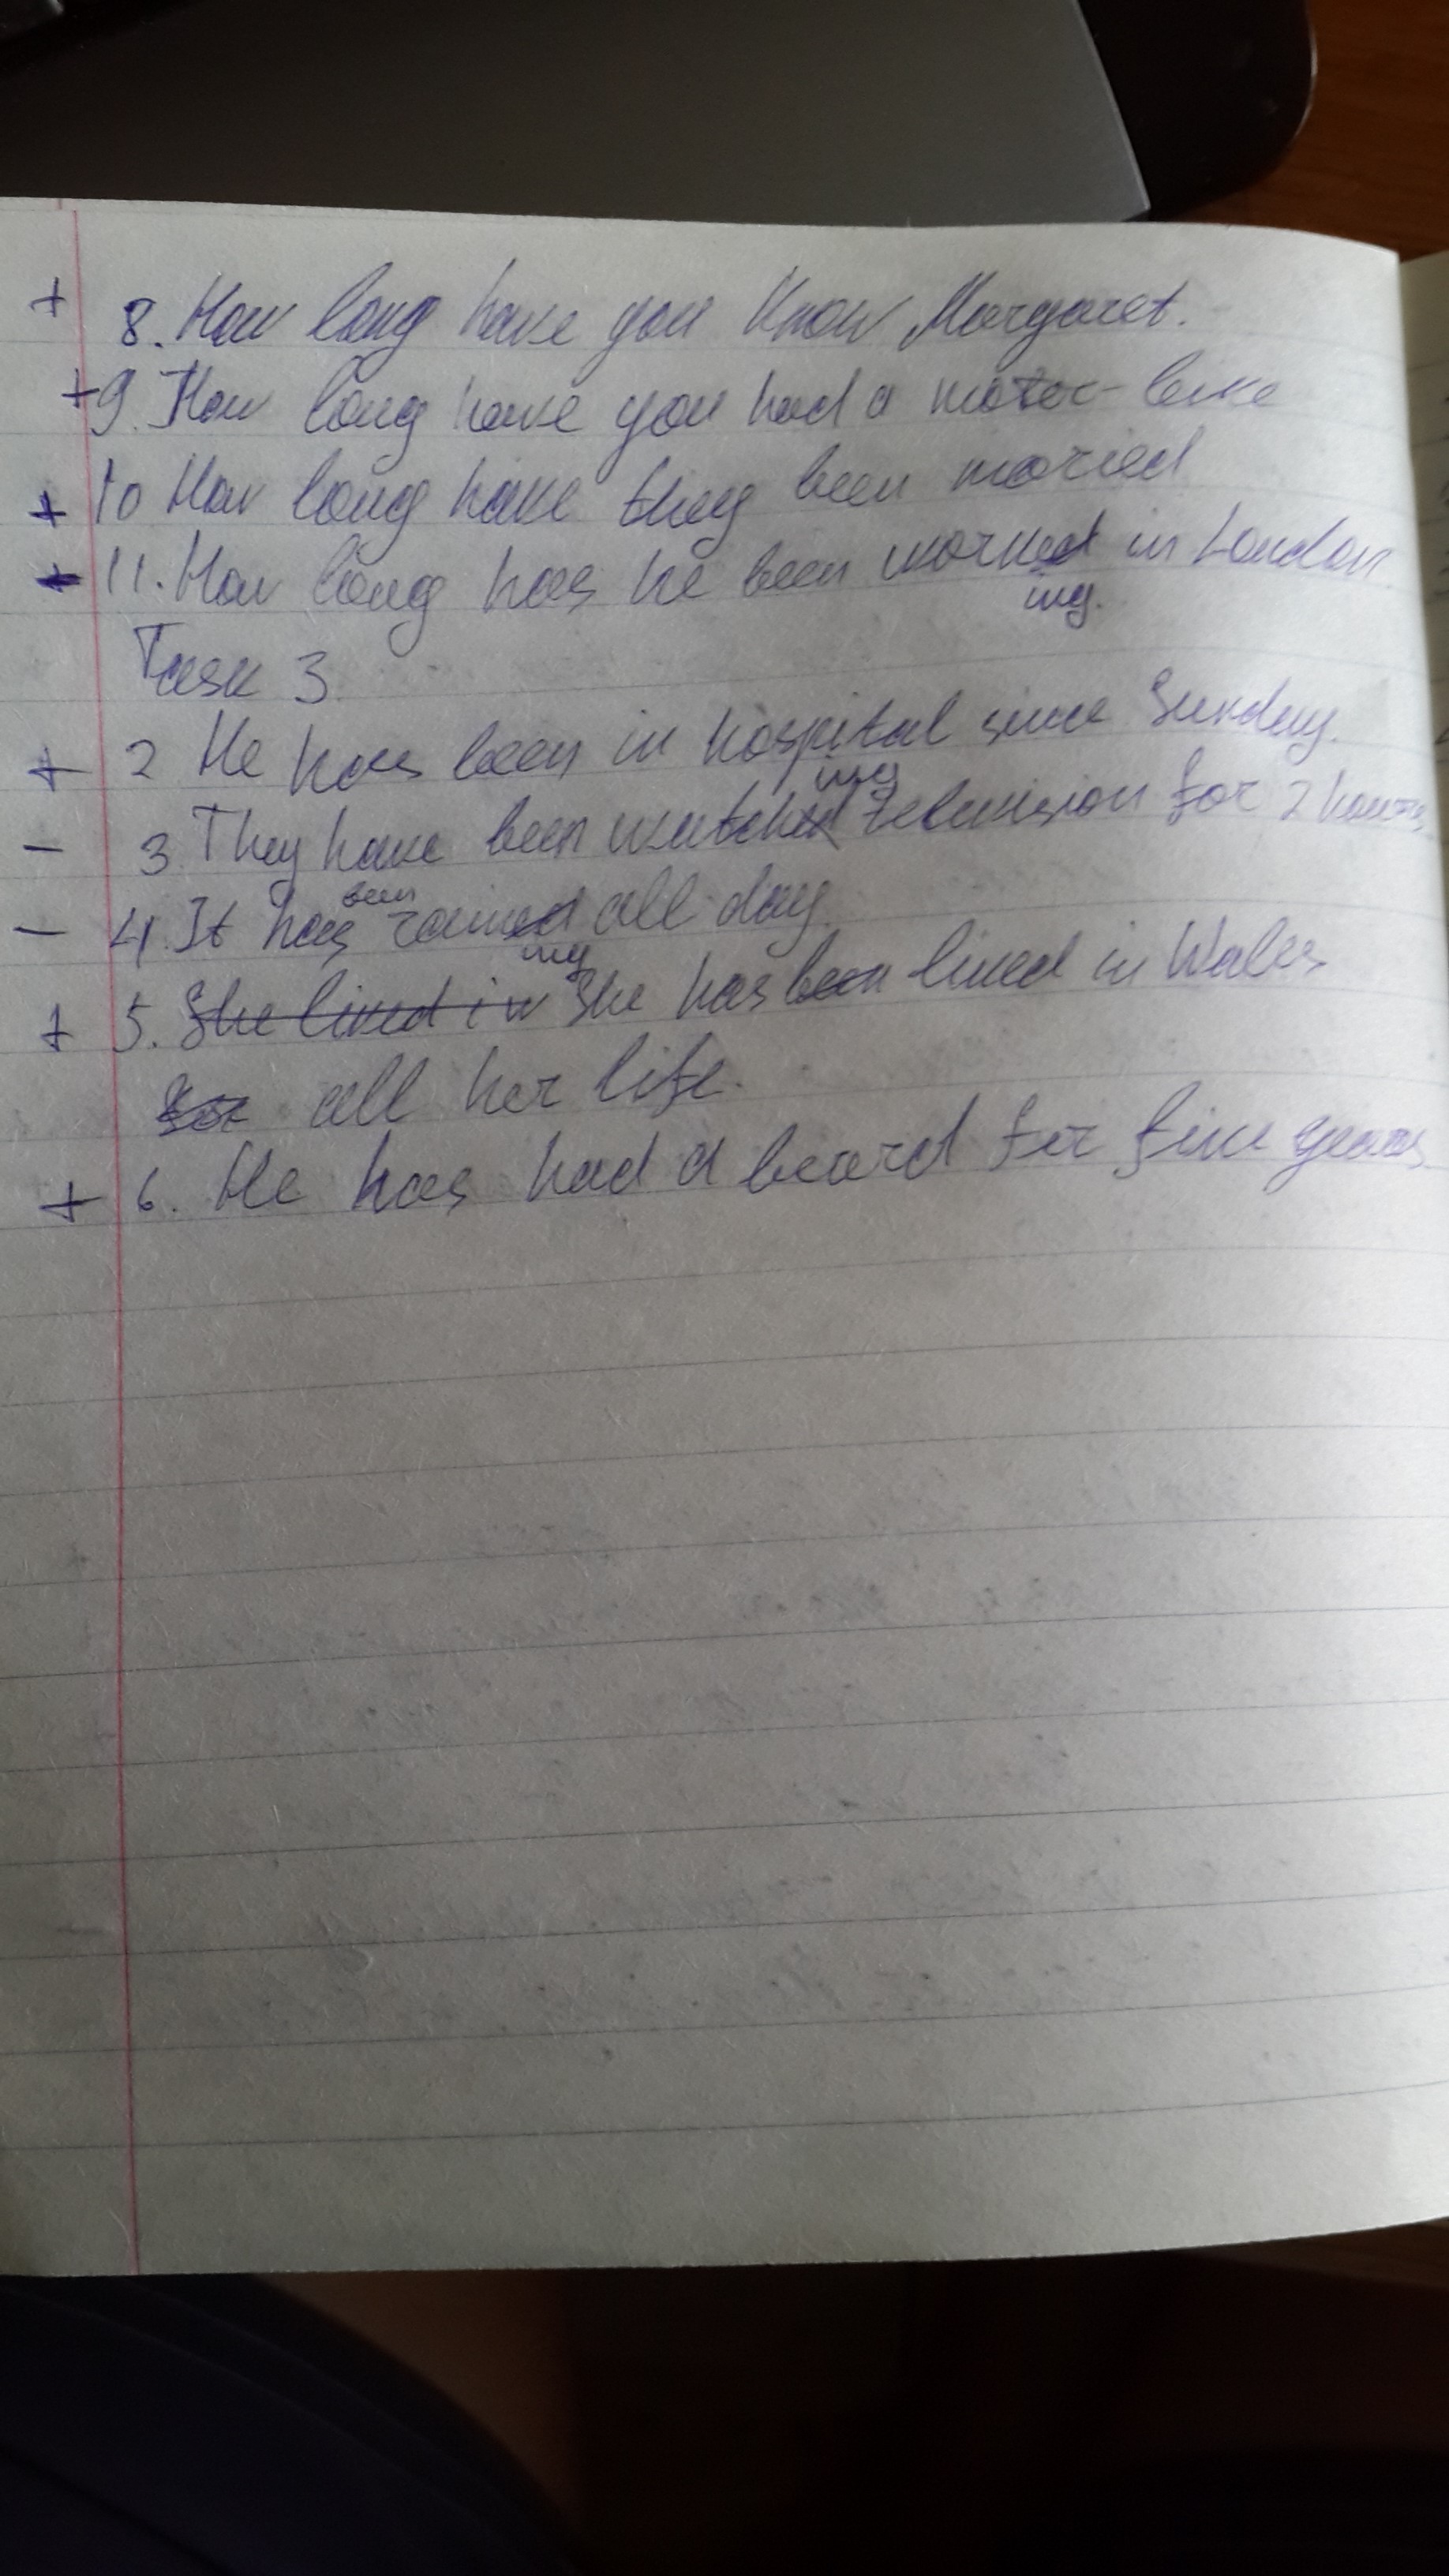 + 8. How long have you know Margaret.
+ 9. How long have you had a motor-bike
+ 10 How long have they been maried
+ 11. How long has he been worked in London
ing.
Task 3
+ 2 He has been in hospital since Sunday.
ing
- 3. They have been watched television for 2 hours
been
- 4. It has rained all day.
ing
+ 5. She lived in She has been lived in Wales
for all her life.
+ 6. He has had a beard for five years